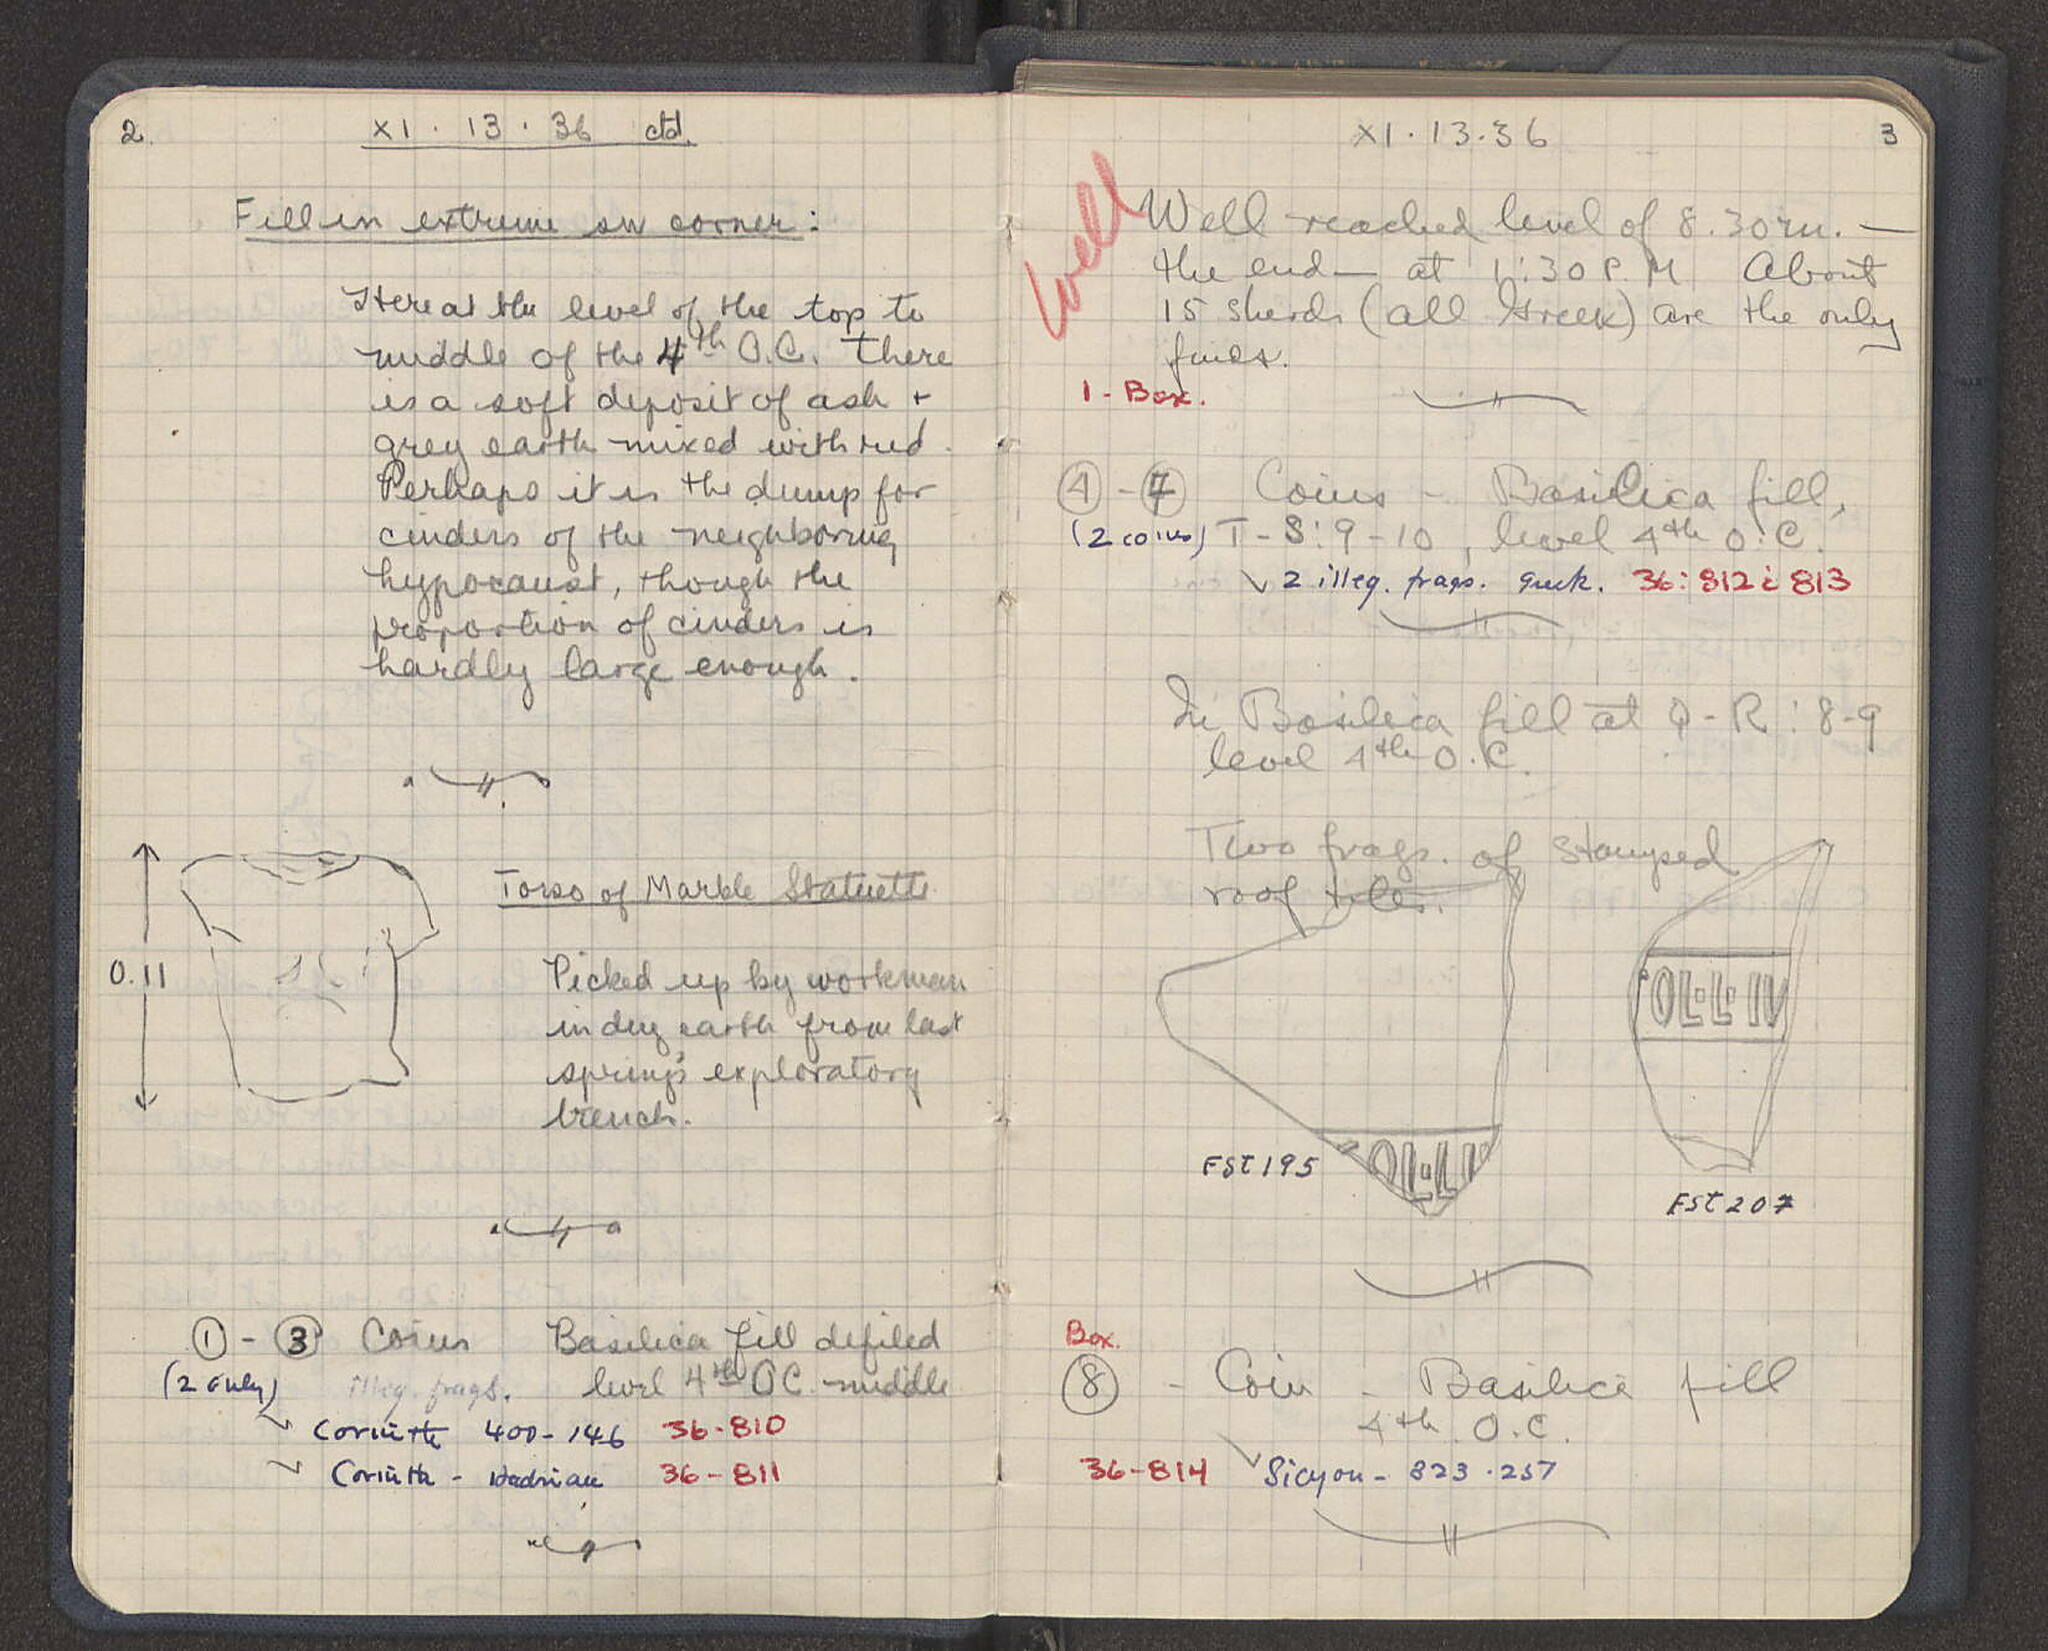 2.
XI . 13 . 36 ctd.
Fill in extreme SW corner:
Here at the level of the top to
middle of the 4th O.C. there
is a soft deposit of ash +
grey earth mixed with red.
Perhaps it is the dump for
cinders of the neighboring
hypocaust, though the
proportion of cinders is
hardly large enough.
0.11
Torso of Marble Statuette
Picked up by workman
in dug earth from last
spring's exploratory
trench.
1 - 3 Coins Basilica fill defiled
(2 only) illeg. frags. level 4th O.C. middle
Corinth 400-146 36-810
Corinth - Hadrian 36-811
XI . 13 . 36
3
Well
Well reached level of 8.30 m. —
the end — at 1:30 P.M. About
15 sherds (all Greek) are the only
finds.
1 - Box.
4 - 7 Coins - Basilica fill,
(2 coins) T-S:9-10, level 4th O.C.
2 illeg. frags. Greek. 36:812 & 813
In Basilica fill at Q-R:8-9
level 4th O.C.
Two frags. of stamped
roof tiles.
OL·L·IV
OL·L·I
FST 195
FST 207
Box.
8 - Coin - Basilica fill
4th O.C.
36-814 Sicyon - 323-257